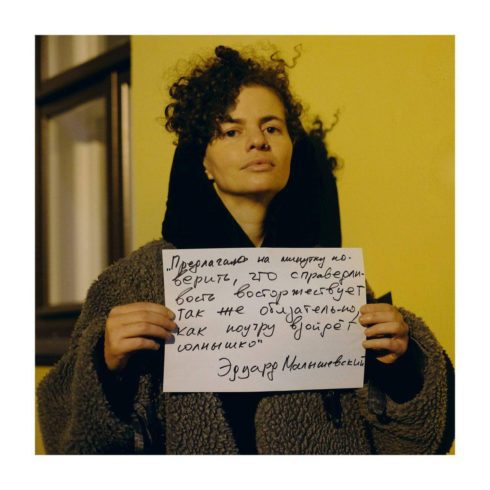 „Предлагаю на минутку по-
верить, что справедли-
вость восторжествует
так же обязательно,
как поутру взойдёт
солнышко"
Эдуард Малышевский